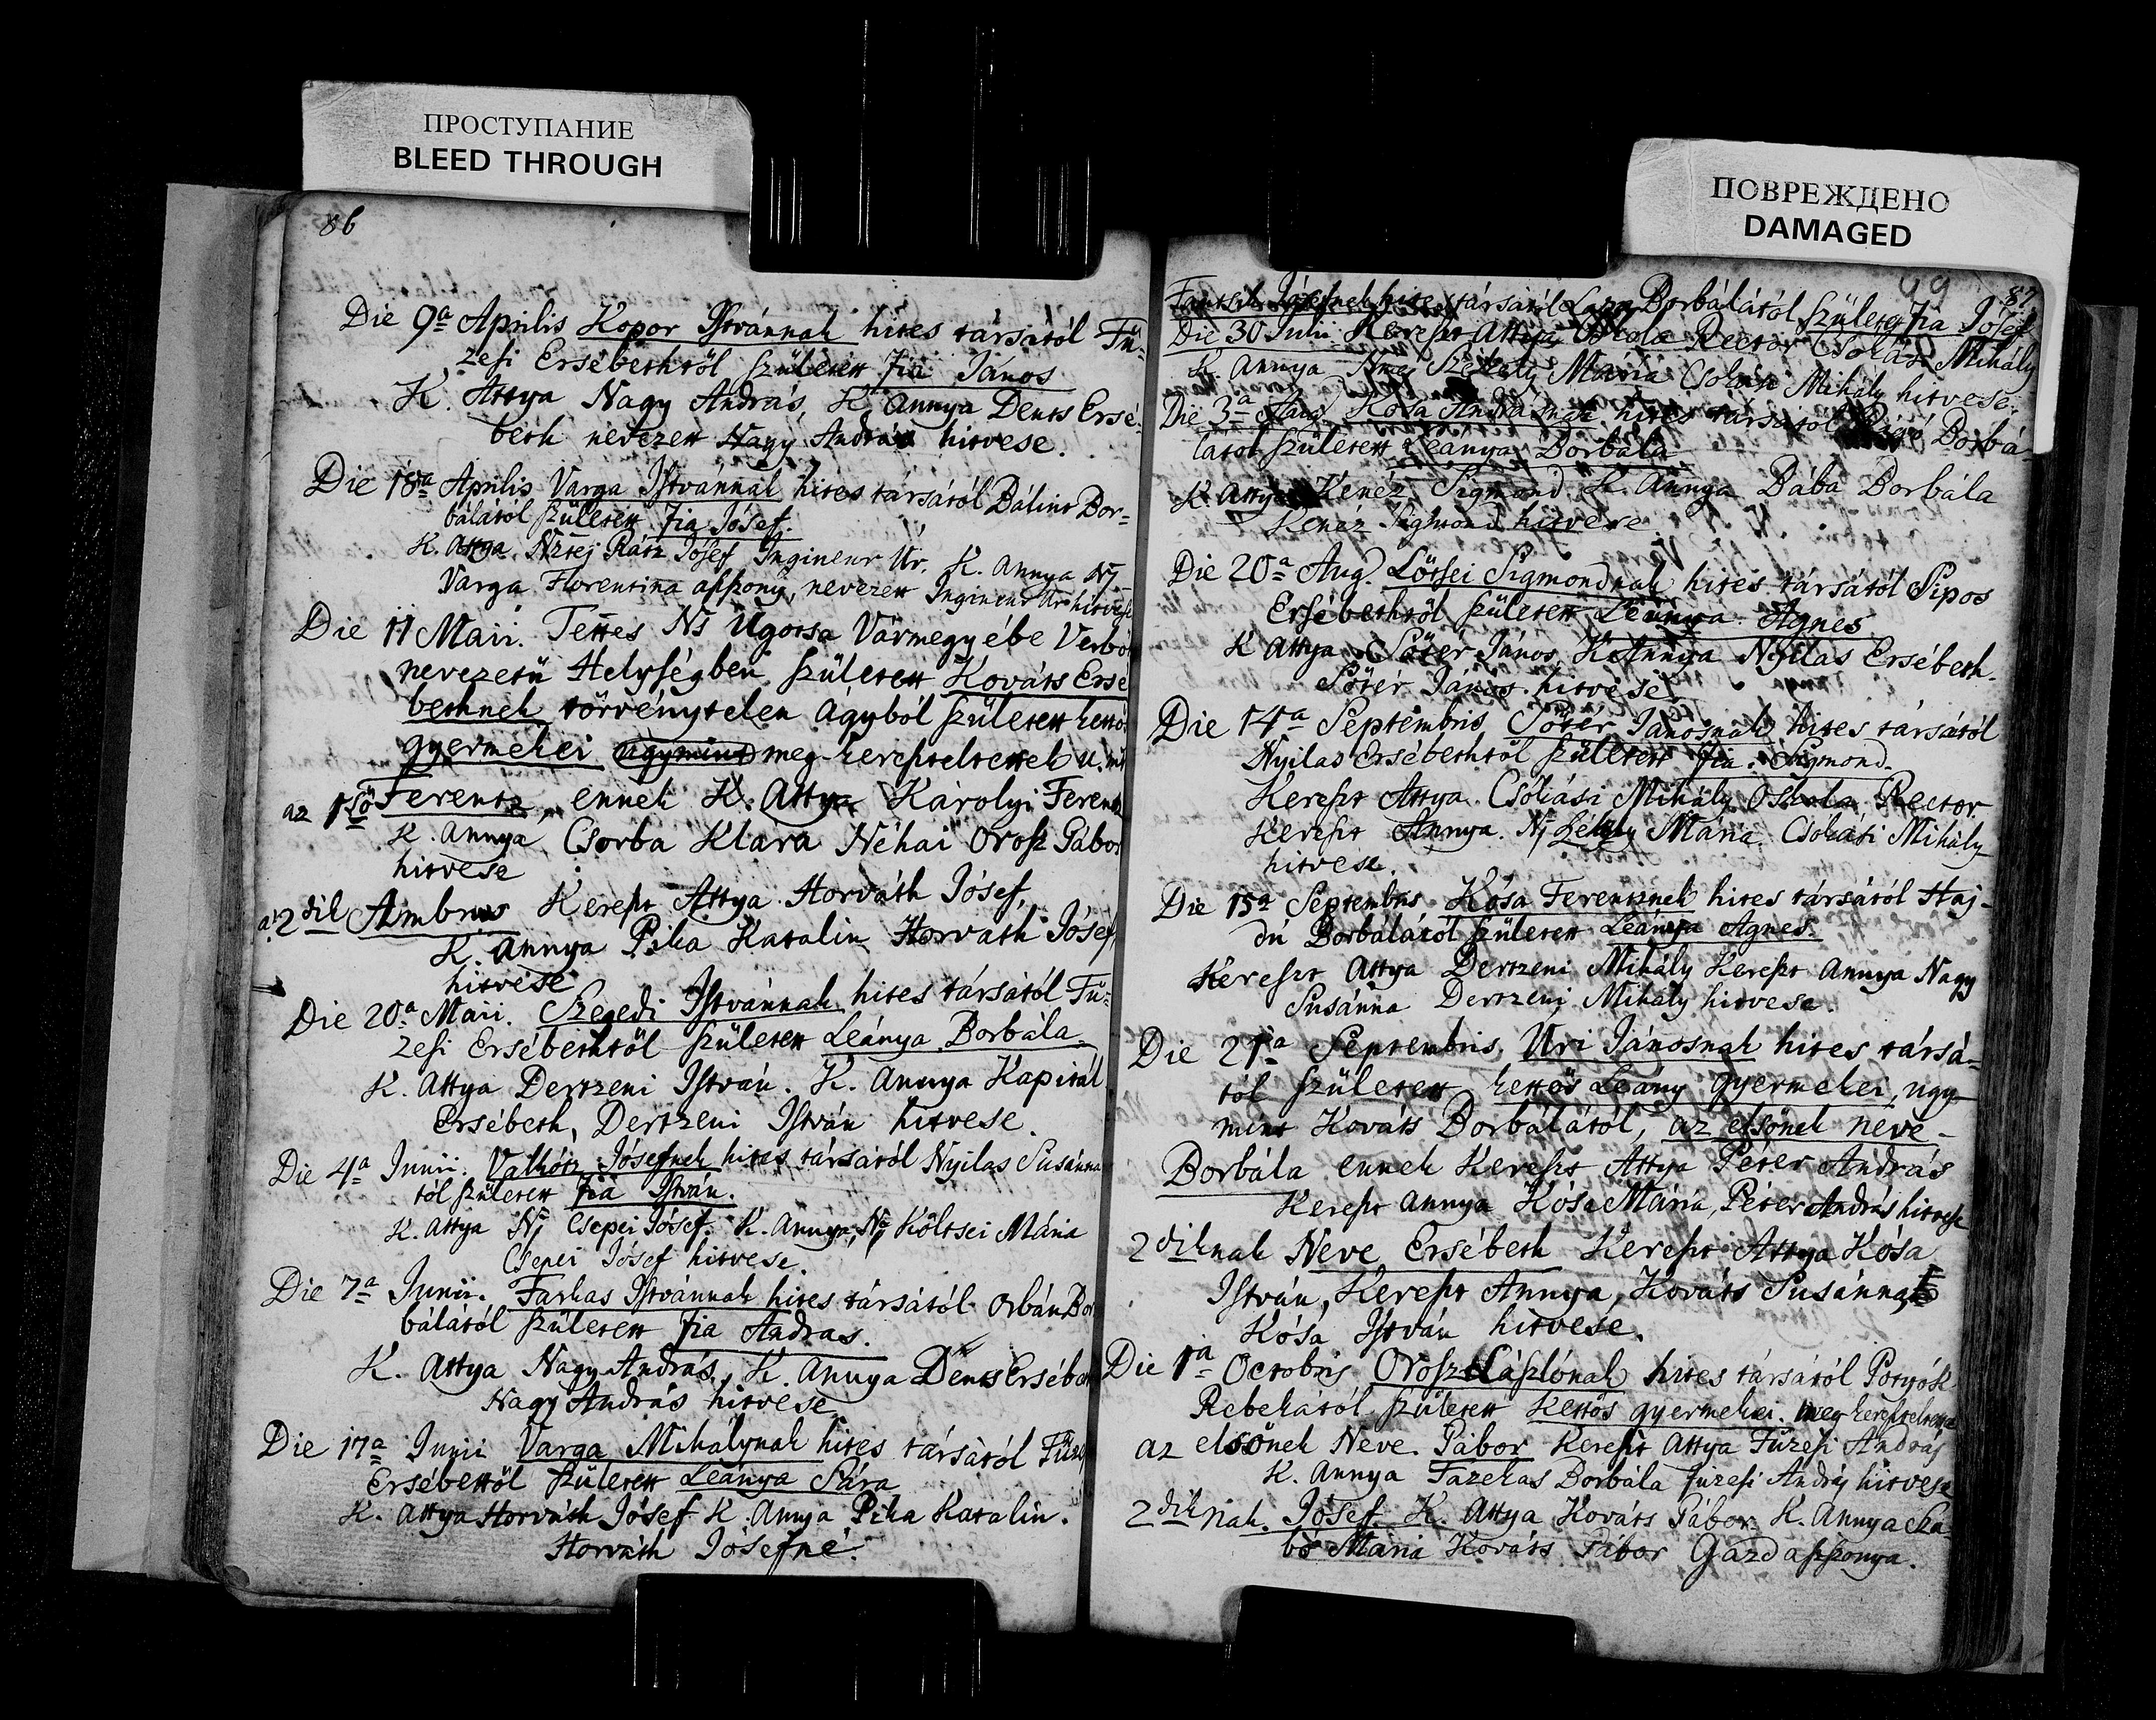 ПРОСТУПАНИЕ
BLEED THROUGH
86
Die 9a Aprilis Kopor Istvánnak hites társától Fü-
zesi Ersébethtöl született fia János
K. Attya Nagy András, K. Annya Dents Ersé-
beth nevezett Nagy András hitvese.
Die 18a Aprilis Varga Istvánnak hites társától Bálint Bor-
bálától született fia Jósef.
K. Attya Nztej Rátz Jósef Ingineur Úr. K. Annya Nj
Varga Florentina asszony, nevezett Ingineur Ur hitvese
Die 11 Maii. Tettes Ns Ugotsa Vármegyébe Verbőtz
nevezetü Helységben született Kováts Ersé
bethnek törvénytelen ágyból született kettős
gyermekei úgymint meg-kereszteltettek u. mint
az 1ső Ferentz, ennek K. Attya Károlyi Ferentz
K. Annya Csorba Klara Néhai Orosz Gábor
hitvese
a' 2dik Ambrus Kereszt Attya Horváth Jósef,
K. Annya Pika Katalin Horváth Jósef
hitvese
Die 20a Maii. Szegedi Istvánnak hites társától Fü-
zesi Ersébethtöl született Leánya Borbála.
K. Attya Dertzeni István. K. Annya Kapitál
Ersébeth, Dertzeni István hitvese.
Die 4a Junii. Valkótz Jósefnek hites társától Nyilas Susánná
tól született fia István.
K. Attya Nj Csepei Jósef. K. Annya, Ns Költsei Mária
Csepei Jósef hitvese.
Die 7a Junii. Farkas Istvánnak hites társától Orbán Bor
bálától született fia Andras.
K. Attya Nagy András, K. Annya Dents Ersébeth
Nagy András hitvese
Die 17a Junii Varga Mihálynak hites társától Füzesi
Ersébettöl született Leánya Sára
K. Attya Horváth Jósef K. Annya Pika Katalin.
Horváth Jósefné.
ПОВРЕЖДЕНО
DAMAGED
99
87
Jósefnek hites társától Borbálától született fia Jósef
Die 30 Julii Kereszt Attya Oskola Rector Csokási Mihály
K. Annya Székely Mária Csokási Mihály hitvese.
Die 3a Aug. Kósa Andrásnak hites társától Borbá-
lától született Leánya Borbála
K. Attya Kenéz Sigmond K. Annya Bába Borbála
Kenéz Sigmond hitvese
Die 20a Aug. Lötsei Sigmondnak hites társától Sipos
Ersébethtöl született Leánya Agnes
K Attya Sőtér János, K Annya Nyilas Ersébeth.
Sőtér János hitvese
Die 14a Septembris Sőtér Jánosnak hites társától
Nyilas Ersébethtöl született fia Sigmond.
Kereszt Attya. Csókási Mihály Oskola Rector
Kereszt Annya. Nj Mária Csókási Mihály
hitvese.
Die 15a Septembris Kósa Ferentznek hites társától Haj-
dú Borbálától született Leánya Agnes.
Kereszt Attya Dertzeni Mihály Kereszt Annya Nagy
Susánna Dertzeni Mihály hitvese.
Die 21a Septembris, Uri Jánosnak hites társá-
tól született kettős Leány gyermekei, ugy-
mint Kováts Borbálától, az elsőnek neve-
Borbála ennek Kereszt Attya Péter András
Kereszt Annya Kósa Mária, Péter András hitvese
2diknak Neve Ersébeth Kereszt Attya Kósa
István, Kereszt Annya, Kováts Susánna
Kósa István hitvese.
Die 1a Octobris Orosz Lászlónak hites társától Potyók
Rebekától született kettős gyermekei. meg kereszteltettek
az elsőnek Neve. Gábor Kereszt Attya Füzesi András
K. Annya Fazekas Borbála füzesi András hitvese
2diknak. Jósef. K. Attya Kováts Gábor K. Annya Sza-
bó Mária Kováts Gábor Gazdasszonya.